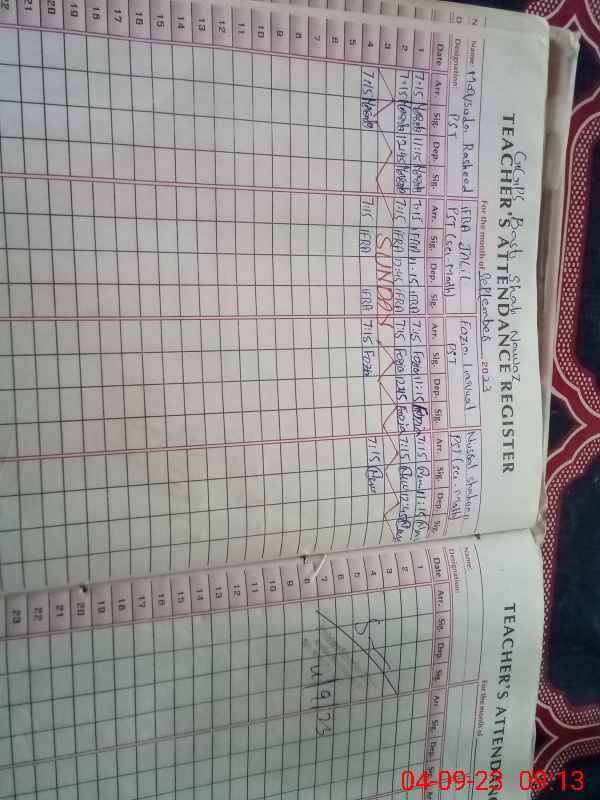 GGPS Basti Shah Nawaz
TEACHER'S ATTENDANCE REGISTER
For the month of September 2023
Name: Maqsuda Rasheed IFRA JALIL Fozia Nusrat Shaheen
Designation: PST PST (sci-Math) PST PST (sci-Math)
Date Arr. Sig. Dep. Sig. Arr. Sig. Dep. Sig. Arr. Sig. Dep. Sig. Arr. Sig. Dep. Sig.
1 7:15 11:15 7:15 IFRA 11:15 IFRA 7:15 Fozia 11:15 Fozia 7:15 11:15
2 7:15 12:45 7:15 IFRA 12:45 IFRA 7:15 Fozia 12:45 Fozia 7:15 12:45
3 SUNDAY
4 7:15 7:15 IFRA IFRA 7:15 Fozia 7:15
5
6
7
8
9
10
11
12
13
14
15
16
17
18
19
20
21
22
TEACHER'S ATTENDANC
For the month of
Name:
Designation:
Date Arr. Sig. Dep. Sig. Arr. Sig. Dep. S
1
2
3
4
5
6
7
8
9
10
11
12
13
14
15
16
17
18
19
20
21
22
23
4/9/23
04-09-23 09:13